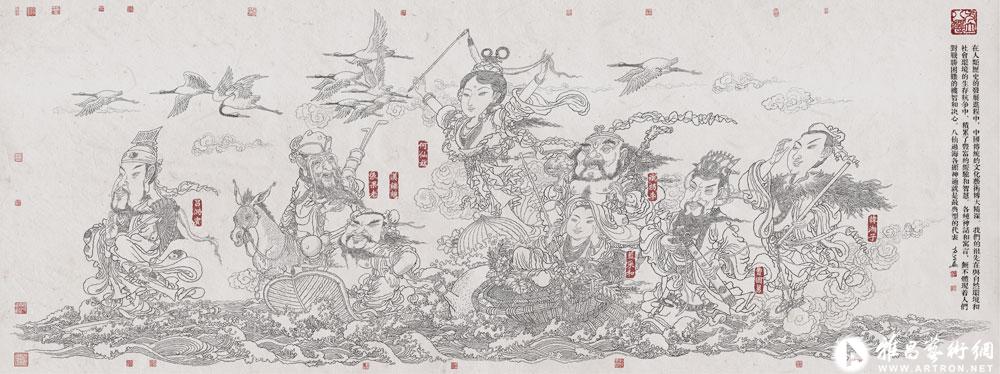 在人類歷史的發展進程中，中國傳統的文化藝術博大精深，我們的祖先在與自然環境和
社會環境的生存抗爭中，積累了豐富的經驗和智慧，各種神話和寓言，無不體現着人們
對戰勝困難的機智和決心，八仙過海各顯神通就是最典型的代表
韓湘子
曹國舅
鐵拐李
藍采和
何仙姑
漢鍾離
張果老
呂洞賓
雅昌藝術網
WWW.ARTRON.NET